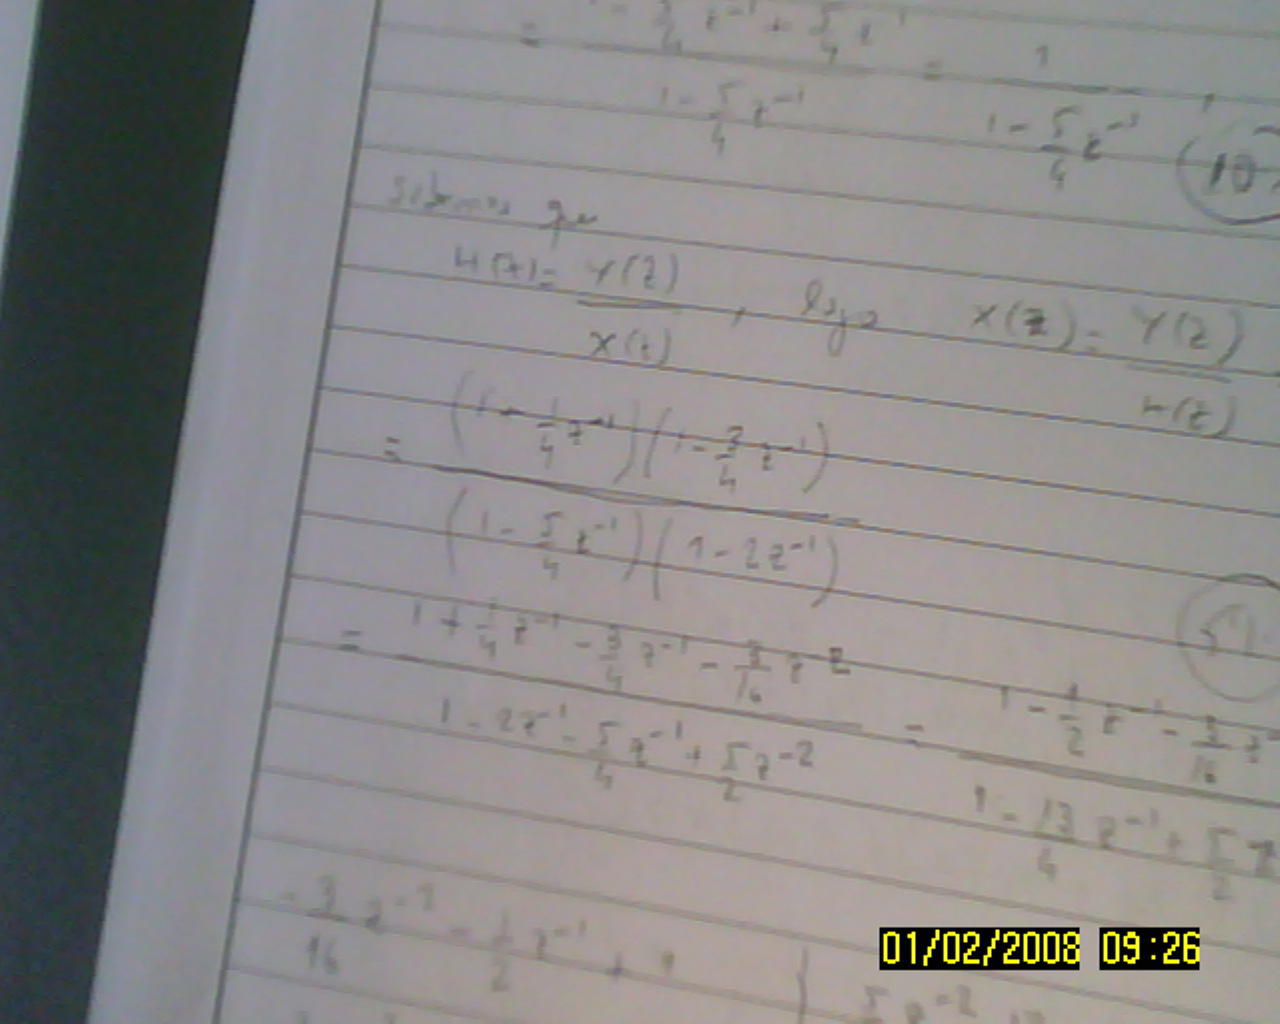 = - 5/4 z^-1 + 5/4 z^-1 / 1 - 5/4 z^-1 = 1 / 1 - 5/4 z^-1 ,
que
H(z) = Y(z) / X(z) , luego X(z) = Y(z) / H(z)
= (1 + 1/4 z^-1)(1 - 3/4 z^-1) / (1 - 5/4 z^-1)(1 - 2z^-1)
= 1 + 1/4 z^-1 - 3/4 z^-1 - 3/16 z^-2 / 1 - 2z^-1 - 5/4 z^-1 + 5/2 z^-2 = 1 - 1/2 z^-1 - 3/16 z / 1 - 13/4 z^-1 + 5/2 z
- 3/16 z^-2 - 1/2 z^-1 + 1 | 5/2 z^-2
01/02/2008 09:26